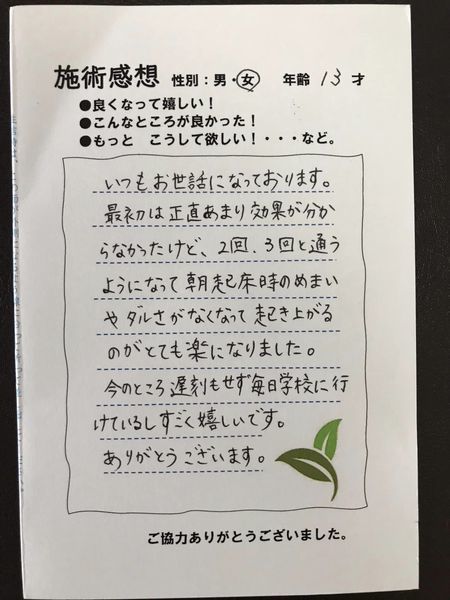 施術感想 性別：男・女 年齢 13 才
●良くなって嬉しい！
●こんなところが良かった！
●もっと こうして欲しい！・・・など。
いつもお世話になっております。
最初は正直あまり効果が分か
らなかったけど、2回、3回と通う
ようになって朝起床時のめまい
やダルさがなくなって起き上がる
のがとても楽になりました。
今のところ遅刻もせず毎日学校に行
けているしすごく嬉しいです。
ありがとうございます。
ご協力ありがとうございました。